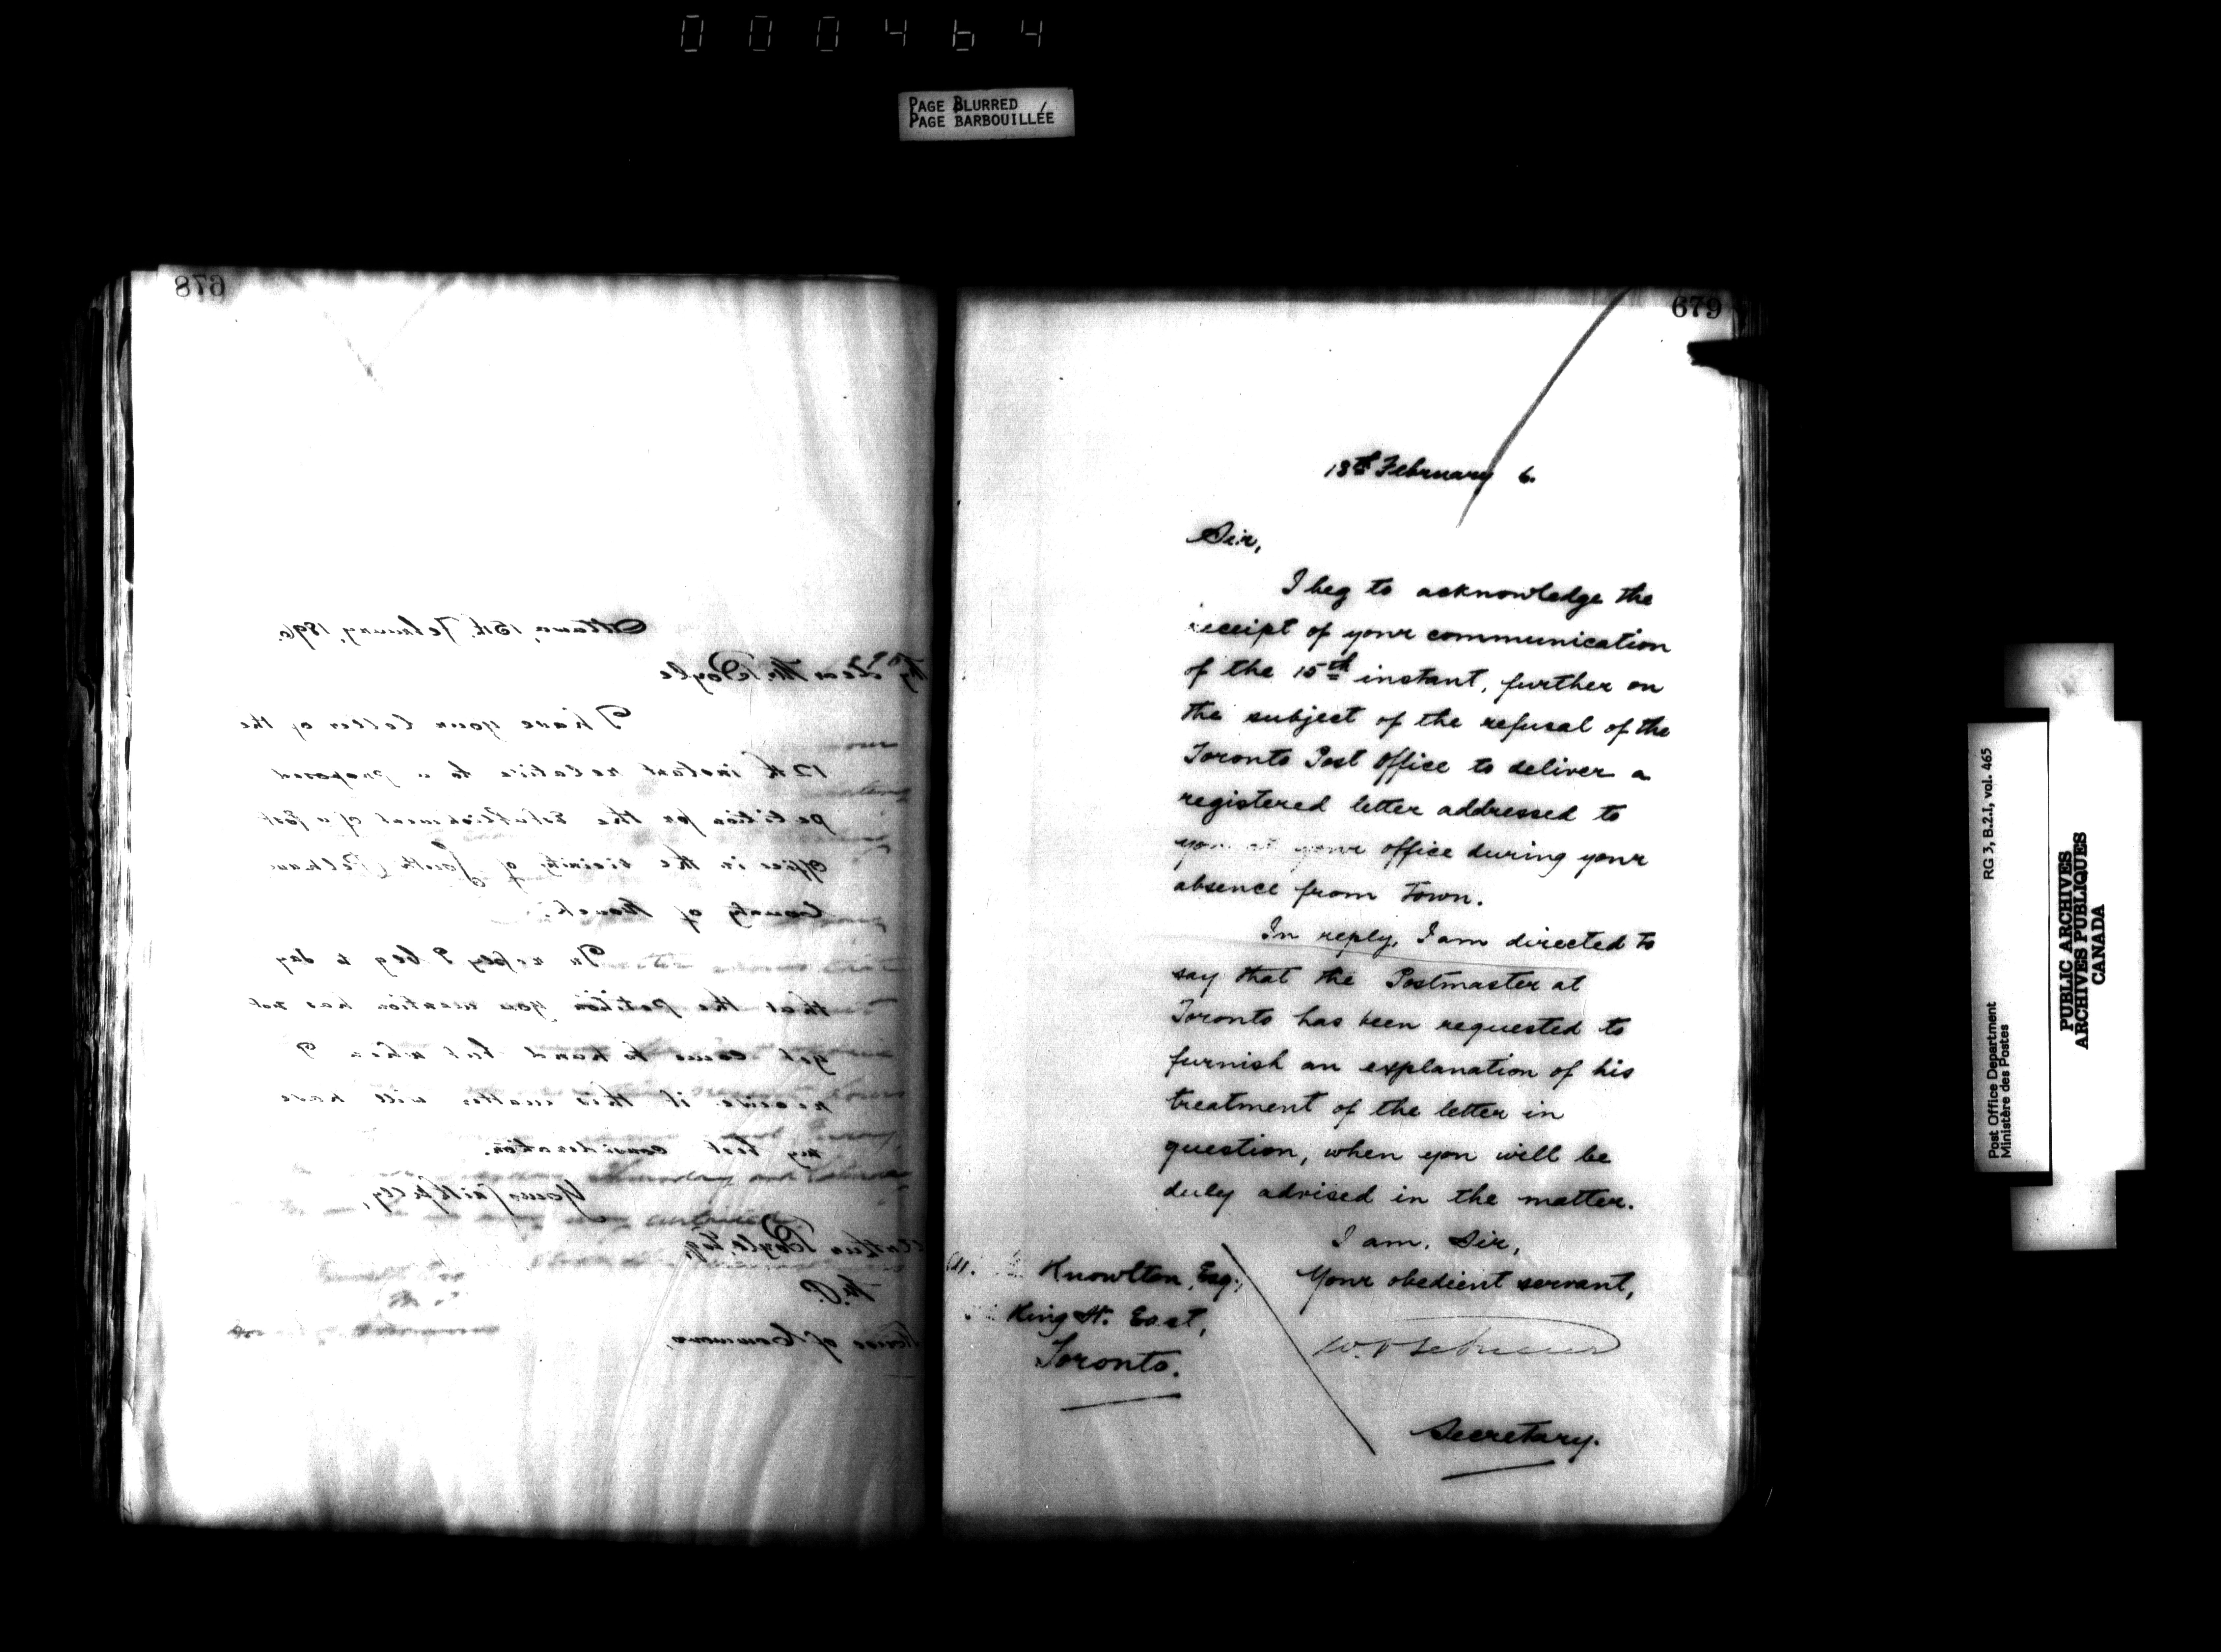 000464
PAGE BLURRED
PAGE BARBOUILLÉE
678
Ottawa, 15th. February, 1896.
My dear Mr. Boyle
I have your letter of the
12th instant relative to a proposed
petition for the establishment of a Post
Office in the vicinity of South Pelham
County of Monck.
In reply I beg to say
that the petition you mention has not
yet come to hand but when I
receive it this matter will have
my best consideration.
Yours faithfully,
Arthur Boyle, Esq,
M.P.
House of Commons,
679
18th February 6.
Sir,
I beg to acknowledge the
receipt of your communication
of the 15th instant, further on
the subject of the refusal of the
Toronto Post Office to deliver a
registered letter addressed to
you at your office during your
absence from Town.
In reply, I am directed to
say that the Postmaster at
Toronto has been requested to
furnish an explanation of his
treatment of the letter in
question, when you will be
duly advised in the matter.
I am, Sir,
Your obedient servant,
Knowlton, Esq.,
King St. East,
Toronto.
Secretary.
Post Office Department
Ministère des Postes
RG 3, B.2.I, vol. 465
PUBLIC ARCHIVES
ARCHIVES PUBLIQUES
CANADA